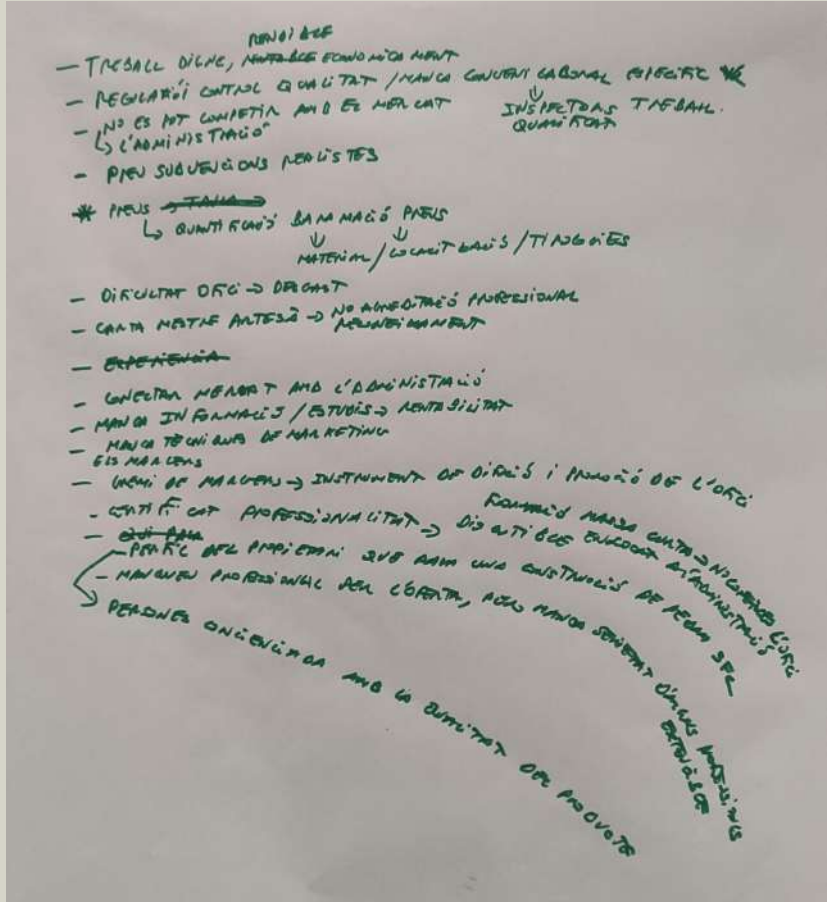 RENDIBLE
- TREBALL DIGNE, RENTABLE ECONÒMICAMENT
- REGULACIÓ CONTROL QUALITAT / MANCA CONVENI LABORAL ESPECÍFIC
↓ INSPECTORS TREBALL.
QUALIFICAT
- NO ES POT COMPETIR AMB EL MERCAT
↳ L'ADMINISTRACIÓ
- PREU SUBVENCIONS REALISTES
* PREUS
↳ QUANTIFICACIÓ BAREMACIÓ PREUS
↓ ↓
MATERIAL / LOCALITZACIÓ / TIPOLOGIES
- DIFICULTAT OFICI → DESGAST
- CARTA MESTRE ARTESÀ → NO ACREDITACIÓ PROFESIONAL
RECONEIXAMENT
- EXPERIENCIA
- CONECTAR MERCAT AMB L'ADMINISTRACIÓ
- MANCA INFORMACIÓ / ESTUDIS → RENTABILITAT
- MANCA TÈCNIQUES DE MARKETING
ELS MARGERS
- GREMI DE MARGERS → INSTRUMENT DE DIFUSIÓ I PROMOCIÓ DE L'OFICI
FORMACIÓ MASSA CURTA → NO CONEIXES L'OFICI
- CERTIFICAT PROFESSIONALITAT → DISCUTIBLE ENFOCAT A L'ADMINISTRACIÓ
- QUI PAGA
- PERFIL DEL PROPIETARI QUE PAGA UNA CONSTRUCCIÓ DE PEDRA SECA
- MANQUEN PROFESSIONALS PER L'OFERTA, PERÒ MANCA SERIETAT
↳ PERSONES CONCIENCIADA AMB LA QUALITAT DEL PRODUCTE